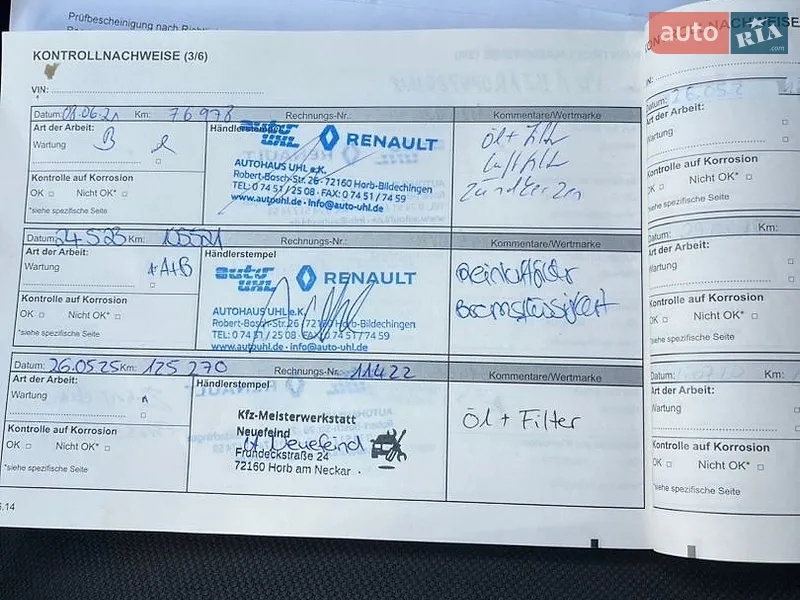 Prüfbescheinigung nach Richtli
auto RIA .com
NACHWEISE
KONTROLLNACHWEISE (3/6)
VIN:
Datum: 08.06.21 Km: 76 978 Rechnungs-Nr.: Kommentare/Wertmarke
Art der Arbeit: Händlerstempel
Wartung B
auto UHL RENAULT
AUTOHAUS UHL e.K.
Robert-Bosch-Str. 26 - 72160 Horb-Bildechingen
TEL: 0 74 51 / 25 08 - FAX: 0 74 51 / 74 59
www.autouhl.de - info@auto-uhl.de
Öl + Filter
Luftfilter
Zündkerzen
Kontrolle auf Korrosion
OK Nicht OK*
*siehe spezifische Seite
Datum: 24.5.23 Km: 105521 Rechnungs-Nr.: Kommentare/Wertmarke
Art der Arbeit: Händlerstempel
Wartung A+B
auto UHL RENAULT
AUTOHAUS UHL e.K.
Robert-Bosch-Str. 26 / 72160 Horb-Bildechingen
TEL: 0 74 51 / 25 08 - FAX: 0 74 51 / 74 59
www.autouhl.de - info@auto-uhl.de
Reinluftfilter
Bremsflüssigkeit
Kontrolle auf Korrosion
OK Nicht OK*
*siehe spezifische Seite
Datum: 26.05.25 Km: 125 270 Rechnungs-Nr.: 11422 Kommentare/Wertmarke
Art der Arbeit: Händlerstempel
Wartung
Kfz-Meisterwerkstatt
Neuefeind
Frundeckstraße 24
72160 Horb am Neckar
Öl + Filter
Kontrolle auf Korrosion
OK Nicht OK*
*siehe spezifische Seite
5.14
Datum:
Art der Arbeit:
Wartung
Kontrolle auf Korrosion
OK Nicht OK*
*siehe spezifische Seite
Datum: Km:
Art der Arbeit:
Wartung
Kontrolle auf Korrosion
OK Nicht OK*
*siehe spezifische Seite
Datum: Km:
Art der Arbeit:
Wartung
Kontrolle auf Korrosion
OK Nicht OK*
*siehe spezifische Seite